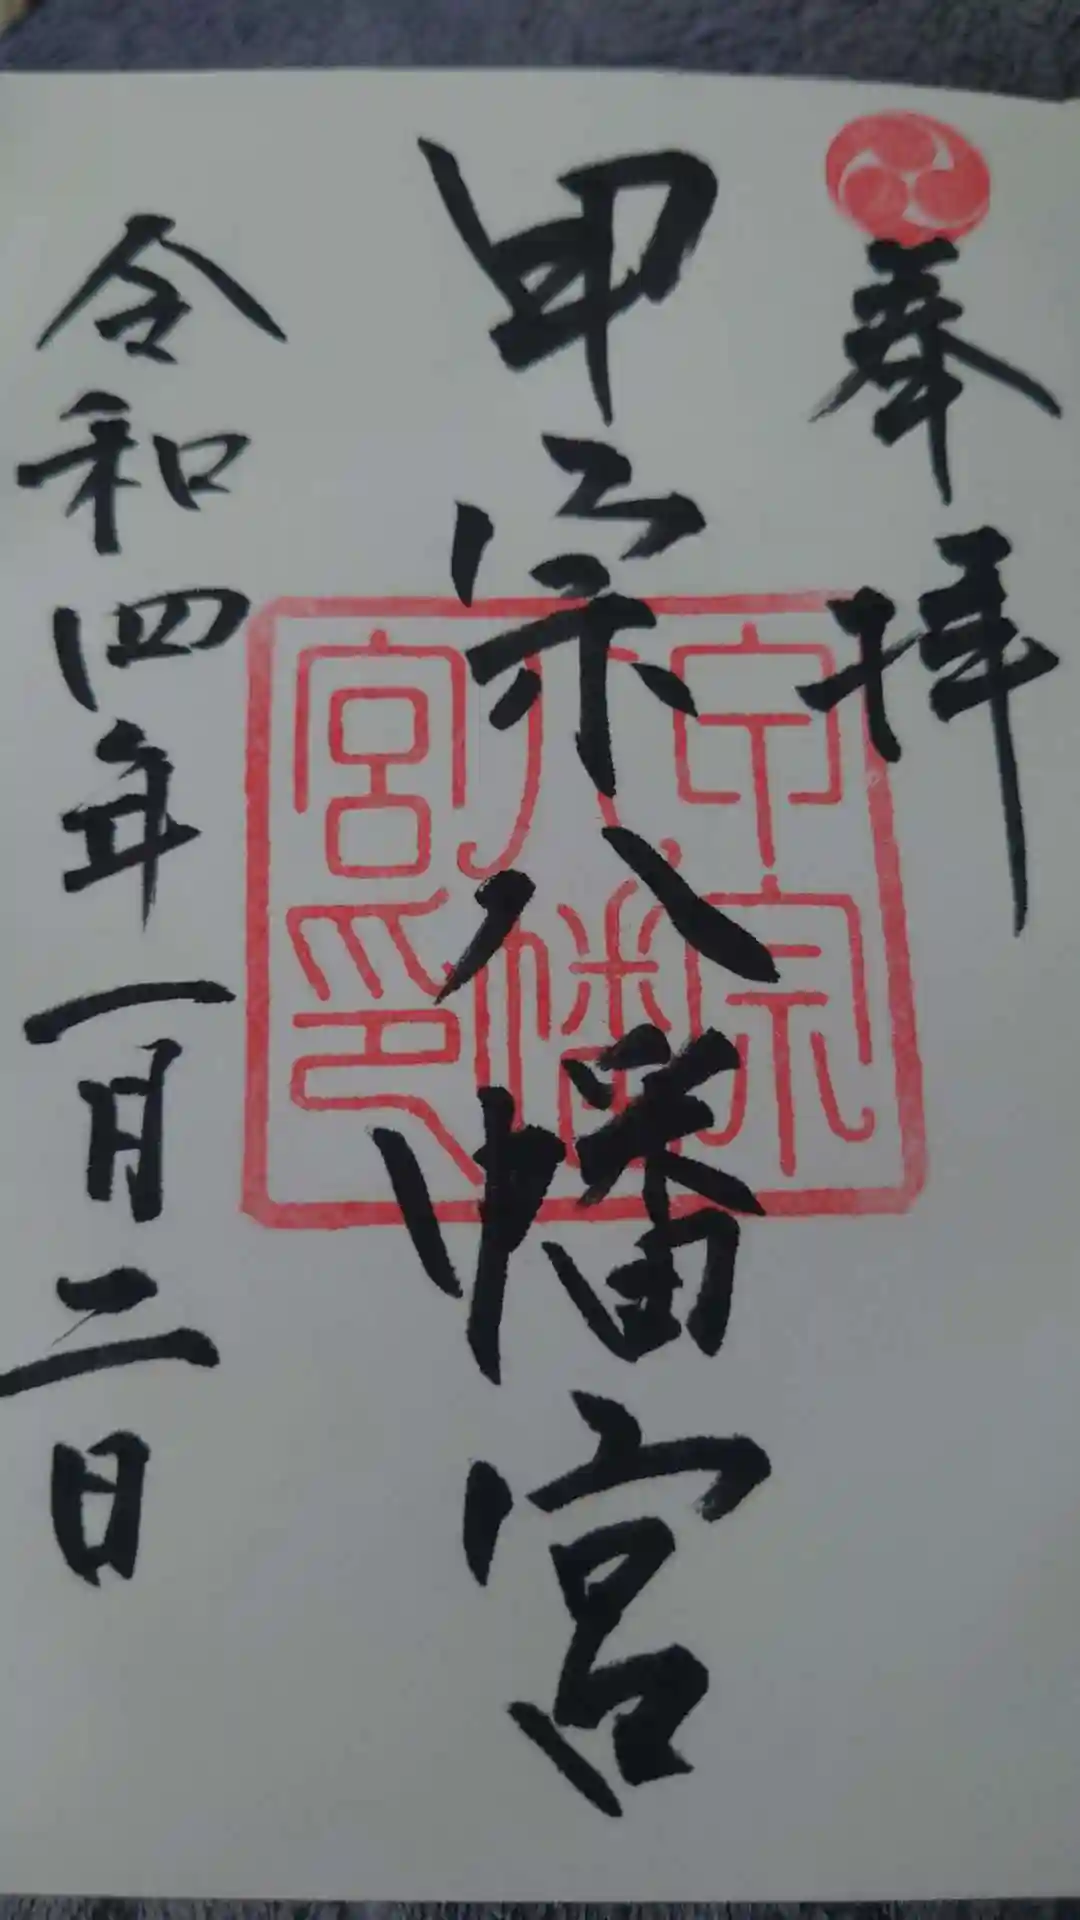 奉拝
甲宗八幡宮
甲宗
八幡
宮印
令和四年一月二日